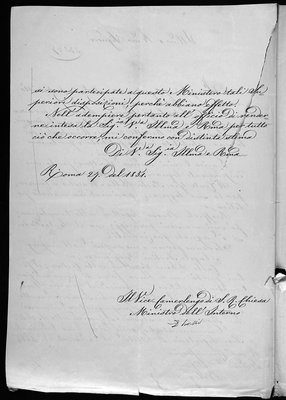 si sono partecipate a questo Ministero tali Su-
periori disposizioni perchè abbiano effetto.
Nell'adempiere pertanto all'officio di render
ne intesa la Sig.ia V.a Illma e Rma per tutto
ciò che occorre mi confermo con distinta stima
Di V.a Sig.ia Illma e Rma
Roma 29 del 1854.
Il Vice Camerlengo di S. R. Chiesa
Ministro dell'Interno